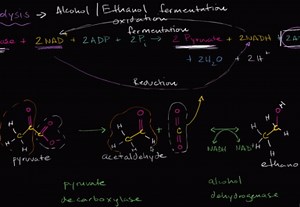 olysis → Alcohol / Ethanol fermentation
oxidation
fermentation
ose + 2 NAD + 2 ADP + 2 Pi → 2 Pyruvate + 2 NADH + 2 A
+ 2H₂O + 2 H⁺
Reduction
pyruvate → acetaldehyde + NADH NAD⁺ ethano
pyruvate
decarboxylase
alcohol
dehydrogenase